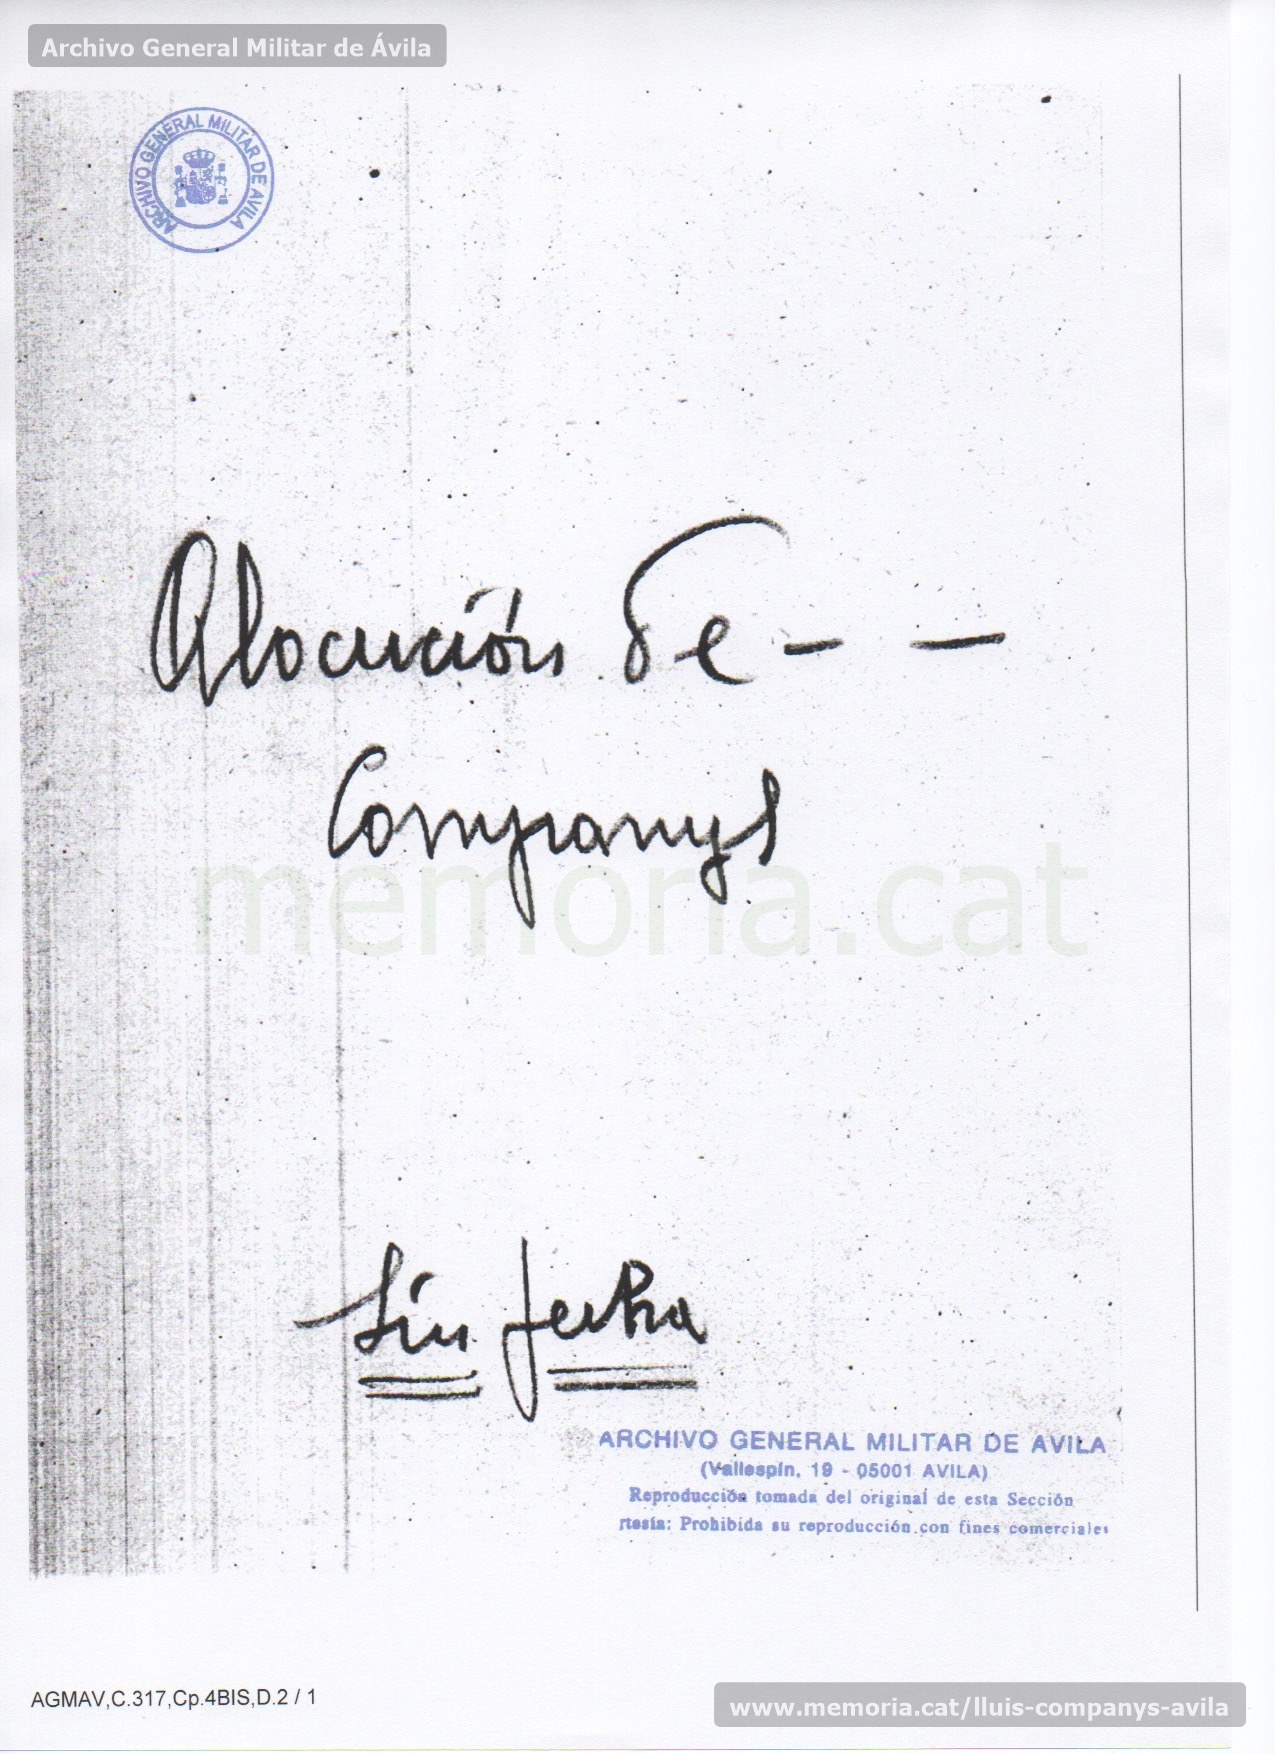 Archivo General Militar de Ávila
ARCHIVO GENERAL MILITAR DE AVILA
Alocución de - -
Companys
memoria.cat
Sin fecha
ARCHIVO GENERAL MILITAR DE AVILA
(Vallespín, 19 - 05001 AVILA)
Reproducción tomada del original de esta Sección
rtesía: Prohibida su reproducción con fines comerciales
AGMAV,C.317,Cp.4BIS,D.2 / 1
www.memoria.cat/lluis-companys-avila